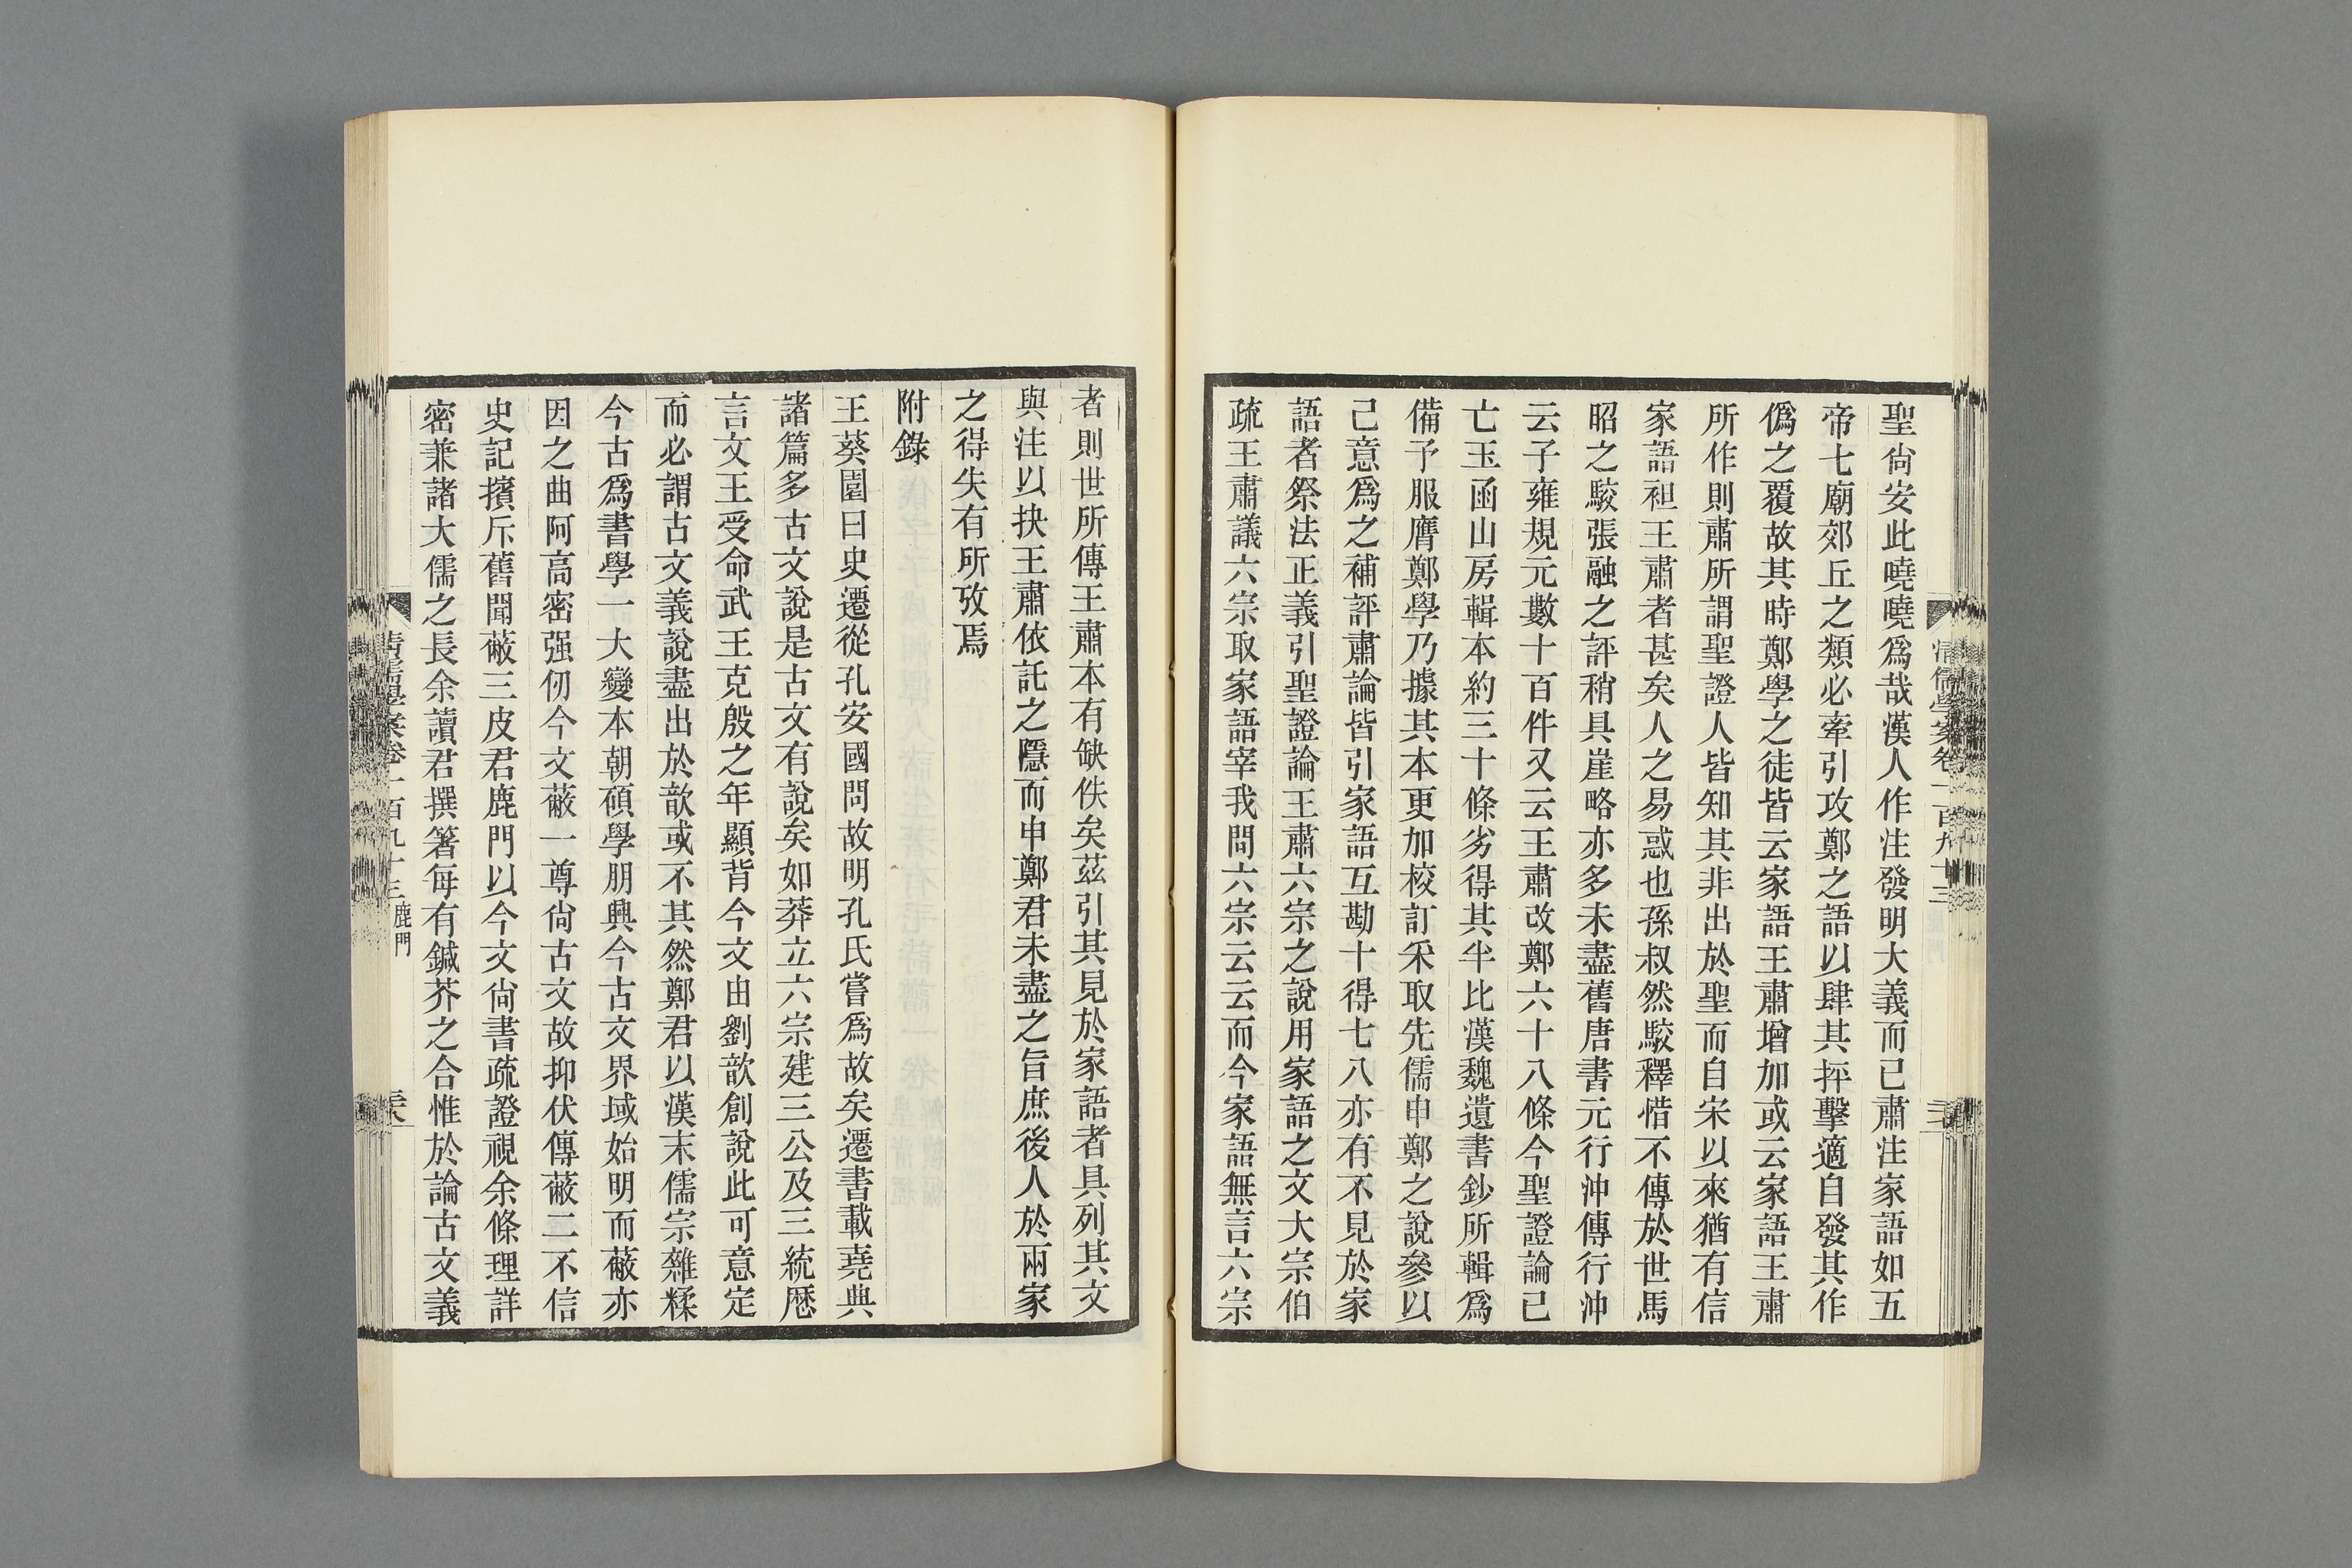 聖尙安此嘵嘵爲哉漢人作注發明大義而已肅注家語如五
帝七廟郊丘之類必牽引攻鄭之語以肆其抨擊適自發其作
僞之覆故其時鄭學之徒皆云家語王肅增加或云家語王肅
所作則肅所謂聖證人皆知其非出於聖而自宋以來猶有信
家語袒王肅者甚矣人之易惑也孫叔然駮釋惜不傳於世馬
昭之駮張融之評稍具崖略亦多未盡舊唐書元行沖傳行沖
云子雍規元數十百件又云王肅改鄭六十八條今聖證論已
亡玉函山房輯本約三十條劣得其半比漢魏遺書鈔所輯爲
備予服膺鄭學乃據其本更加校訂采取先儒申鄭之說參以
己意爲之補評肅論皆引家語互勘十得七八亦有不見於家
語者祭法正義引聖證論王肅六宗之說用家語之文大宗伯
疏王肅議六宗取家語宰我問六宗云云而今家語無言六宗
者則世所傳王肅本有缺佚矣茲引其見於家語者具列其文
與注以抉王肅依託之隱而申鄭君未盡之旨庶後人於兩家
之得失有所攷焉
附錄
王葵園曰史遷從孔安國問故明孔氏嘗爲故矣遷書載堯典
諸篇多古文說是古文有說矣如莽立六宗建三公及三統厯
言文王受命武王克殷之年顯背今文由劉歆創說此可意定
而必謂古文義說盡出於歆或不其然鄭君以漢末儒宗雜糅
今古爲書學一大變本朝碩學朋興今古文界域始明而蔽亦
因之曲阿高密强仞今文蔽一尊尙古文故抑伏傳蔽二不信
史記擯斥舊聞蔽三皮君鹿門以今文尙書疏證視余條理詳
密兼諸大儒之長余讀君撰箸每有鍼芥之合惟於論古文義
清儒學案卷一百九十三 鹿門